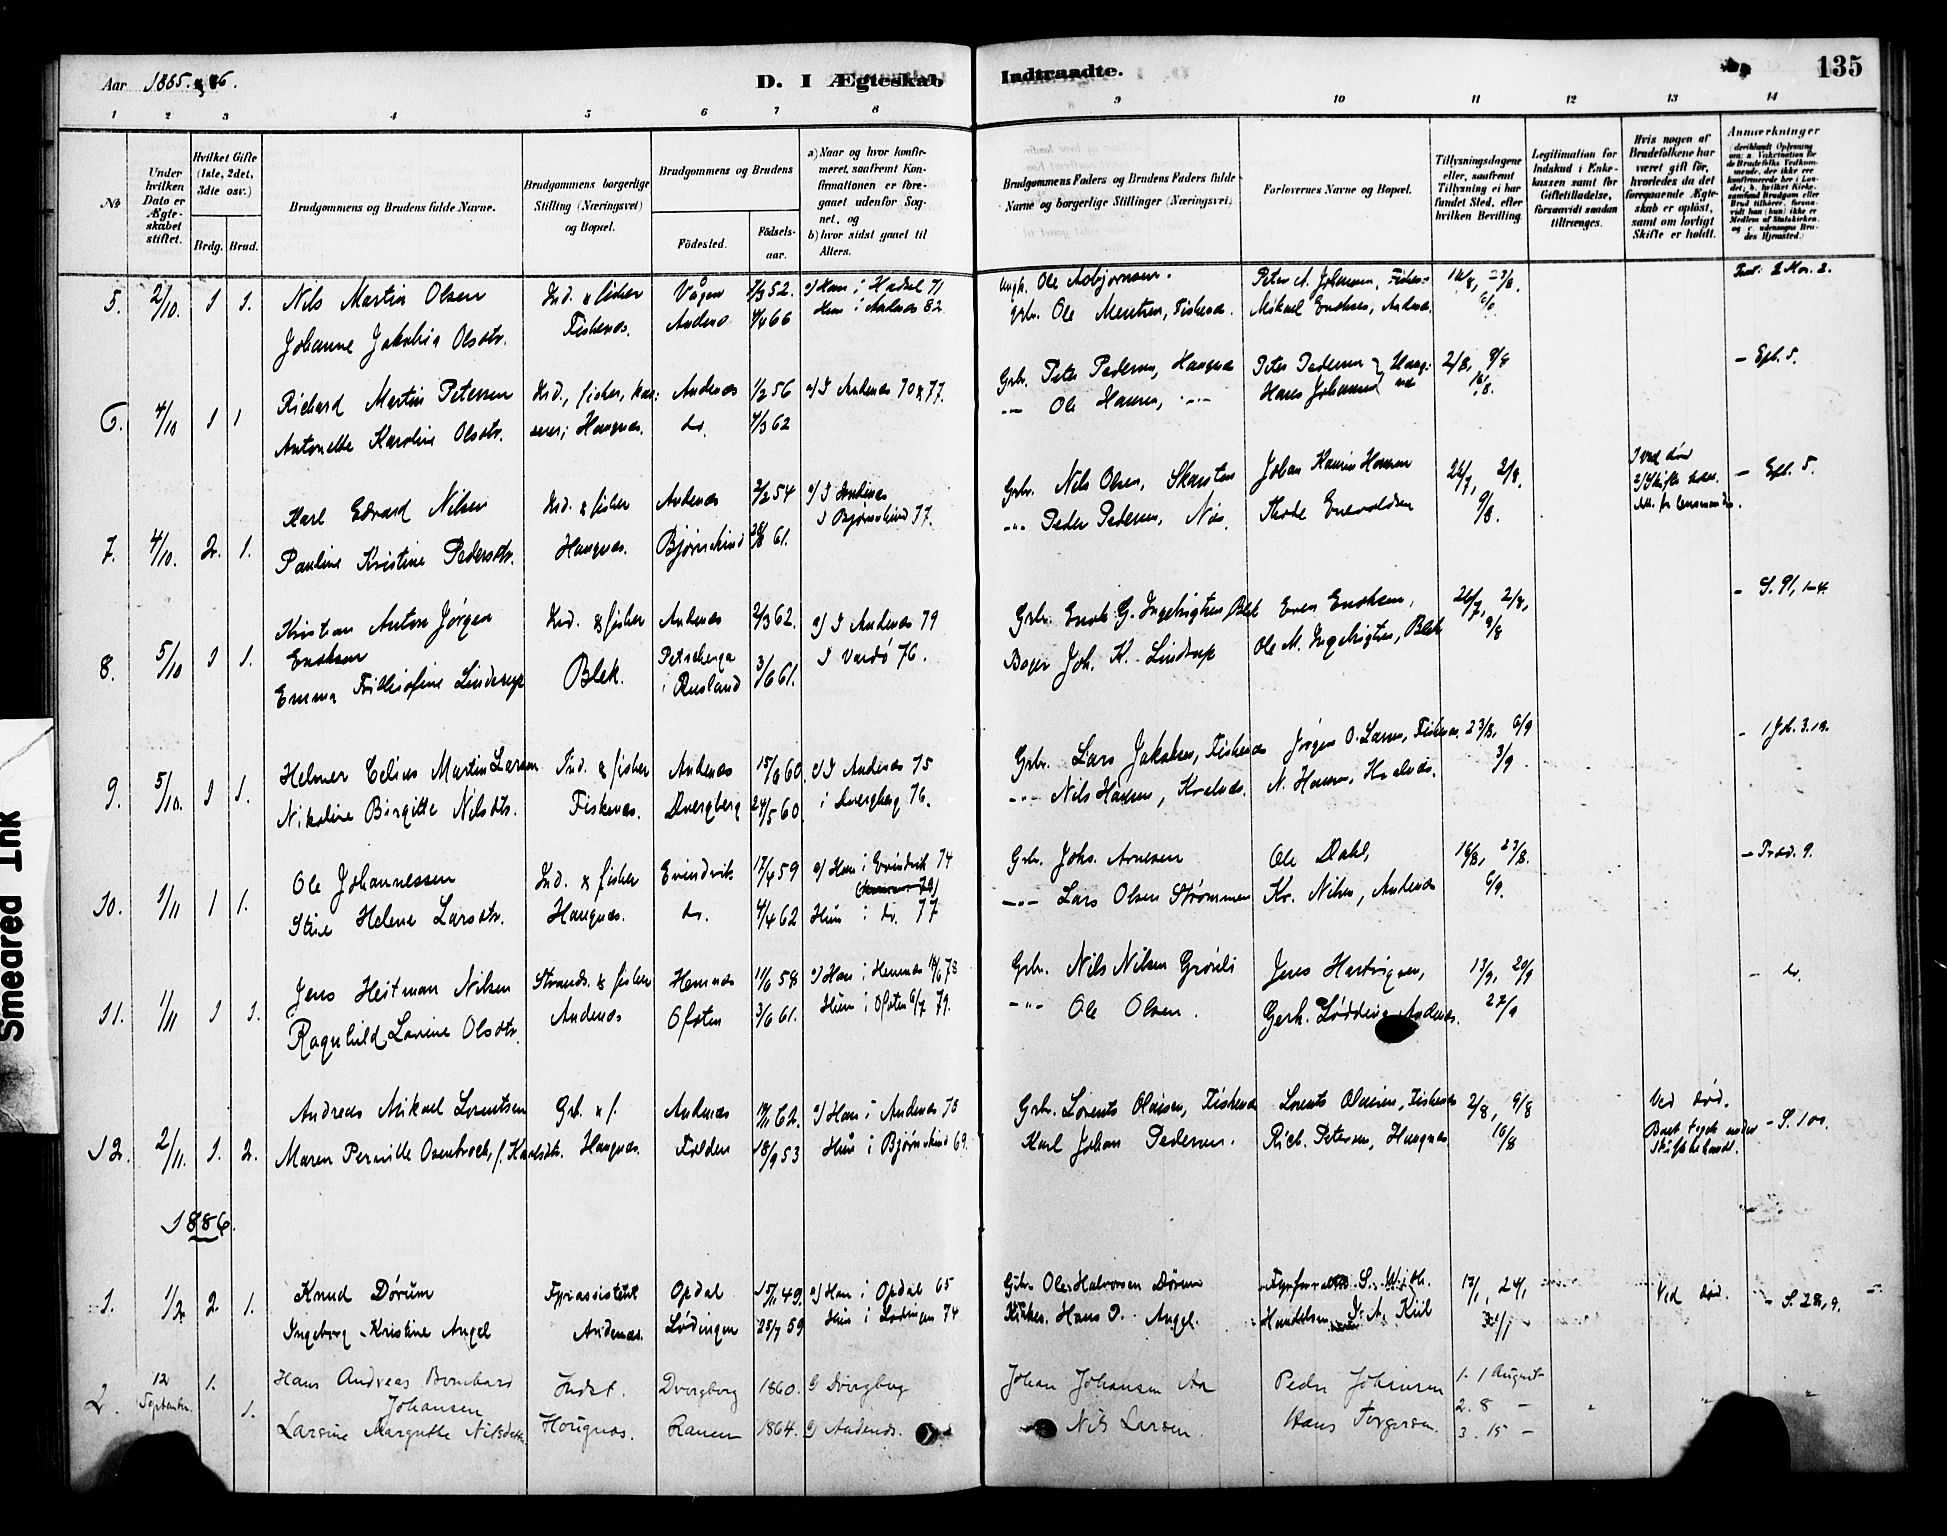 Aar 1885 & 86.
D. I Ægteskab
Indtraadte.
135
1 2 3 4 5 6 7 8 9 10 11 12 13 14
No
Under hvilken Dato er Ægteskabet stiftet.
Hvilket Gifte (1ste, 2det, 3die osv.)
Brdg. Brud.
Brudgommens og Brudens fulde Navne.
Brudgommens borgerlige Stilling (Næringsvei) og Bopæl.
Brudgommens og Brudens
Födested.
Födselsaar.
a) Naar og hvor konfirmeret, saafremt Konfirmationen er foregaaet udenfor Sognet, og
b) hvor sidst gaaet til Alters.
Brudgommens Faders og Brudens Faders fulde Navne og borgerlige Stillinger (Næringsvei)
Forlovernes Navne og Bopæl.
Tillysningsdagene eller, saafremt Tillysning ei har fundet Sted, efter hvilken Bevilling.
Legitimation for Indskud i Enkekassen samt for Giftetilladelse, forsaavidt saadan tiltrænges.
Hvis nogen af Brudefolkene har været gift för, hvorledes da det foregaaende Ægteskab er oplöst, samt om lovligt Skifte er holdt.
Anmærkninger
5. 2/10. 1 1. Nils Martin Olsen Ind. & fisher Vågan 1/3 52. a) Han i Hadsel 71 Ungk. Ole Asbjørnsen. Peter A. Johansen, Fiskenes 16/8, 23/8.
Johanne Jakobia Olsdtr. Fiskenes. Andenes 4/4 66 Hun i Andenes 82 Grbr. Ole Mentsen, Fiskenes. Mikael Enoksen, Andenes 6/9
6. 4/10 1 1 Richard Martin Petersen Ind., fisher, Andenes 1/2 56 a) I Andenes 70 & 77. Grbr. Peter Pedersen, Haugnes Peter Pedersen 2/8, 9/8 — Eph. 5.
Antonette Karoline Olsdtr. Haugnes. do. 4/3 62 —"— Ole Hansen, —"— Hans Johansen 16/8.
7. 4/10. 2. 1. Karl Edvard Nilsen Ind. & fisher Andenes 2/2 54 a) I Andenes Grbr. Nils Olsen, Skarsten Johan Kaurin Hansen 26/7, 2/8. Ved død — Eph. 5.
Pauline Kristine Pedersdtr. Haugnes. Bjørnskind 28/8 61. I Bjørnskind 77. —"— Peder Pedersen, Nøs. Thode Enevoldsen 9/8.
8. 5/10 1 1. Kristian Anton Jørgen Ind. & fisher Andenes 2/3 62. a) I Andenes 79 Grbr. Enok G. Ingebrigtsen, Blek Even Enoksen, 26/7, 2/8, — S. 91, 1-4
Enoksen
Emma Lindrup Blek. i Rusland 3/6 61. I Vardö 76. Joh. K. Lindrup Ole M. Ingebrigtsen, Blek 9/8
9. 5/10. 1 1. Helmer Celius Martin Larsen Ind. & fisher Andenes 15/8 60. a) I Andenes 75 Grbr. Lars Jakobsen, Fiskenes Jørgen O. Larsen, Fiskenes. 23/8, 6/9 — 1 Joh. 3.18.
Nikoline Birgitte Nilsdtr. Fiskenes. Dverberg 24/5 60. i Dverberg 76. —"— Nils Hansen, Kvalnes. N. Hansen, Kvalnes. 3/9
10. 1/11 1 1. Ole Johannessen Ind. & fisher Evindvik 17/4 59 a) Han i Evindvik 74 Grbr. Johs. Arnesen Ole Dahl, 16/8, 23/8. — Præd. 9.
Stine Helene Larsdtr. Haugnes. do. 4/4 62 Hun i do. 77 —"— Lars Olsen Strømmen Kr. Nilsen, Andenes 6/9.
11. 1/11 1 1. Jens Heitman Nilsen Strands. & fisher Hemnes 11/6 58 a) Han i Hemnes 73 Grbr. Nils Nilsen Grønli Jens Hartvigsen, 13/9, 20/9 — do.
Ragnhild Lovine Olsdtr. Andenes Ofoten 3/6 61. Hun i Ofoten 6/7 79. —"— Ole Olsen. Gerh. Lødding, Andenes. 27/9
12. 2/11. 1. 2. Andreas Mikael Lorentsen Grb. & f. Andenes 62. a) Han i Andenes 78 Grbr. Lorents Olaisen, Fiskenes Lorents Olaisen, Fiskenes 2/8, 9/8 Ved død. — S. 100.
Maren Pernille Osenbroch, f. Karlsdtr. Haugnes. Folden 18/9 53 Hun i Bjørnskind 69. Karl Johan Pedersen. Rich. Petersen, Haugnes 16/8
1886.
1. 1/2 2. 1. Knud Dórum Fyrassistent Opdal 15/1 49. a) Han i Opdal 65 Gbr. Ole Halvorsen Dórum 17/1, 24/1, Ved død. — S. 28, 9.
Ingeborg Kristine Angel Andenes. Lödingen 25/7 59 Hun i Lødingen 74 Hans D. Angel. J. A. Kiil 31/1
2. 12 September. 1. Hans Andreas Bernhard Indst. Dverberg 1860. a) Dverberg Johan Johansen Aa Peder Johansen 1. 1 August
Johansen
1. Larsine Margrethe Nilsdatter Haugnes. Ranen 1864. a) Andenes. Nils Larsen. Hans Torgersen. 2. 8 —
3. 15 —
Smeared Ink